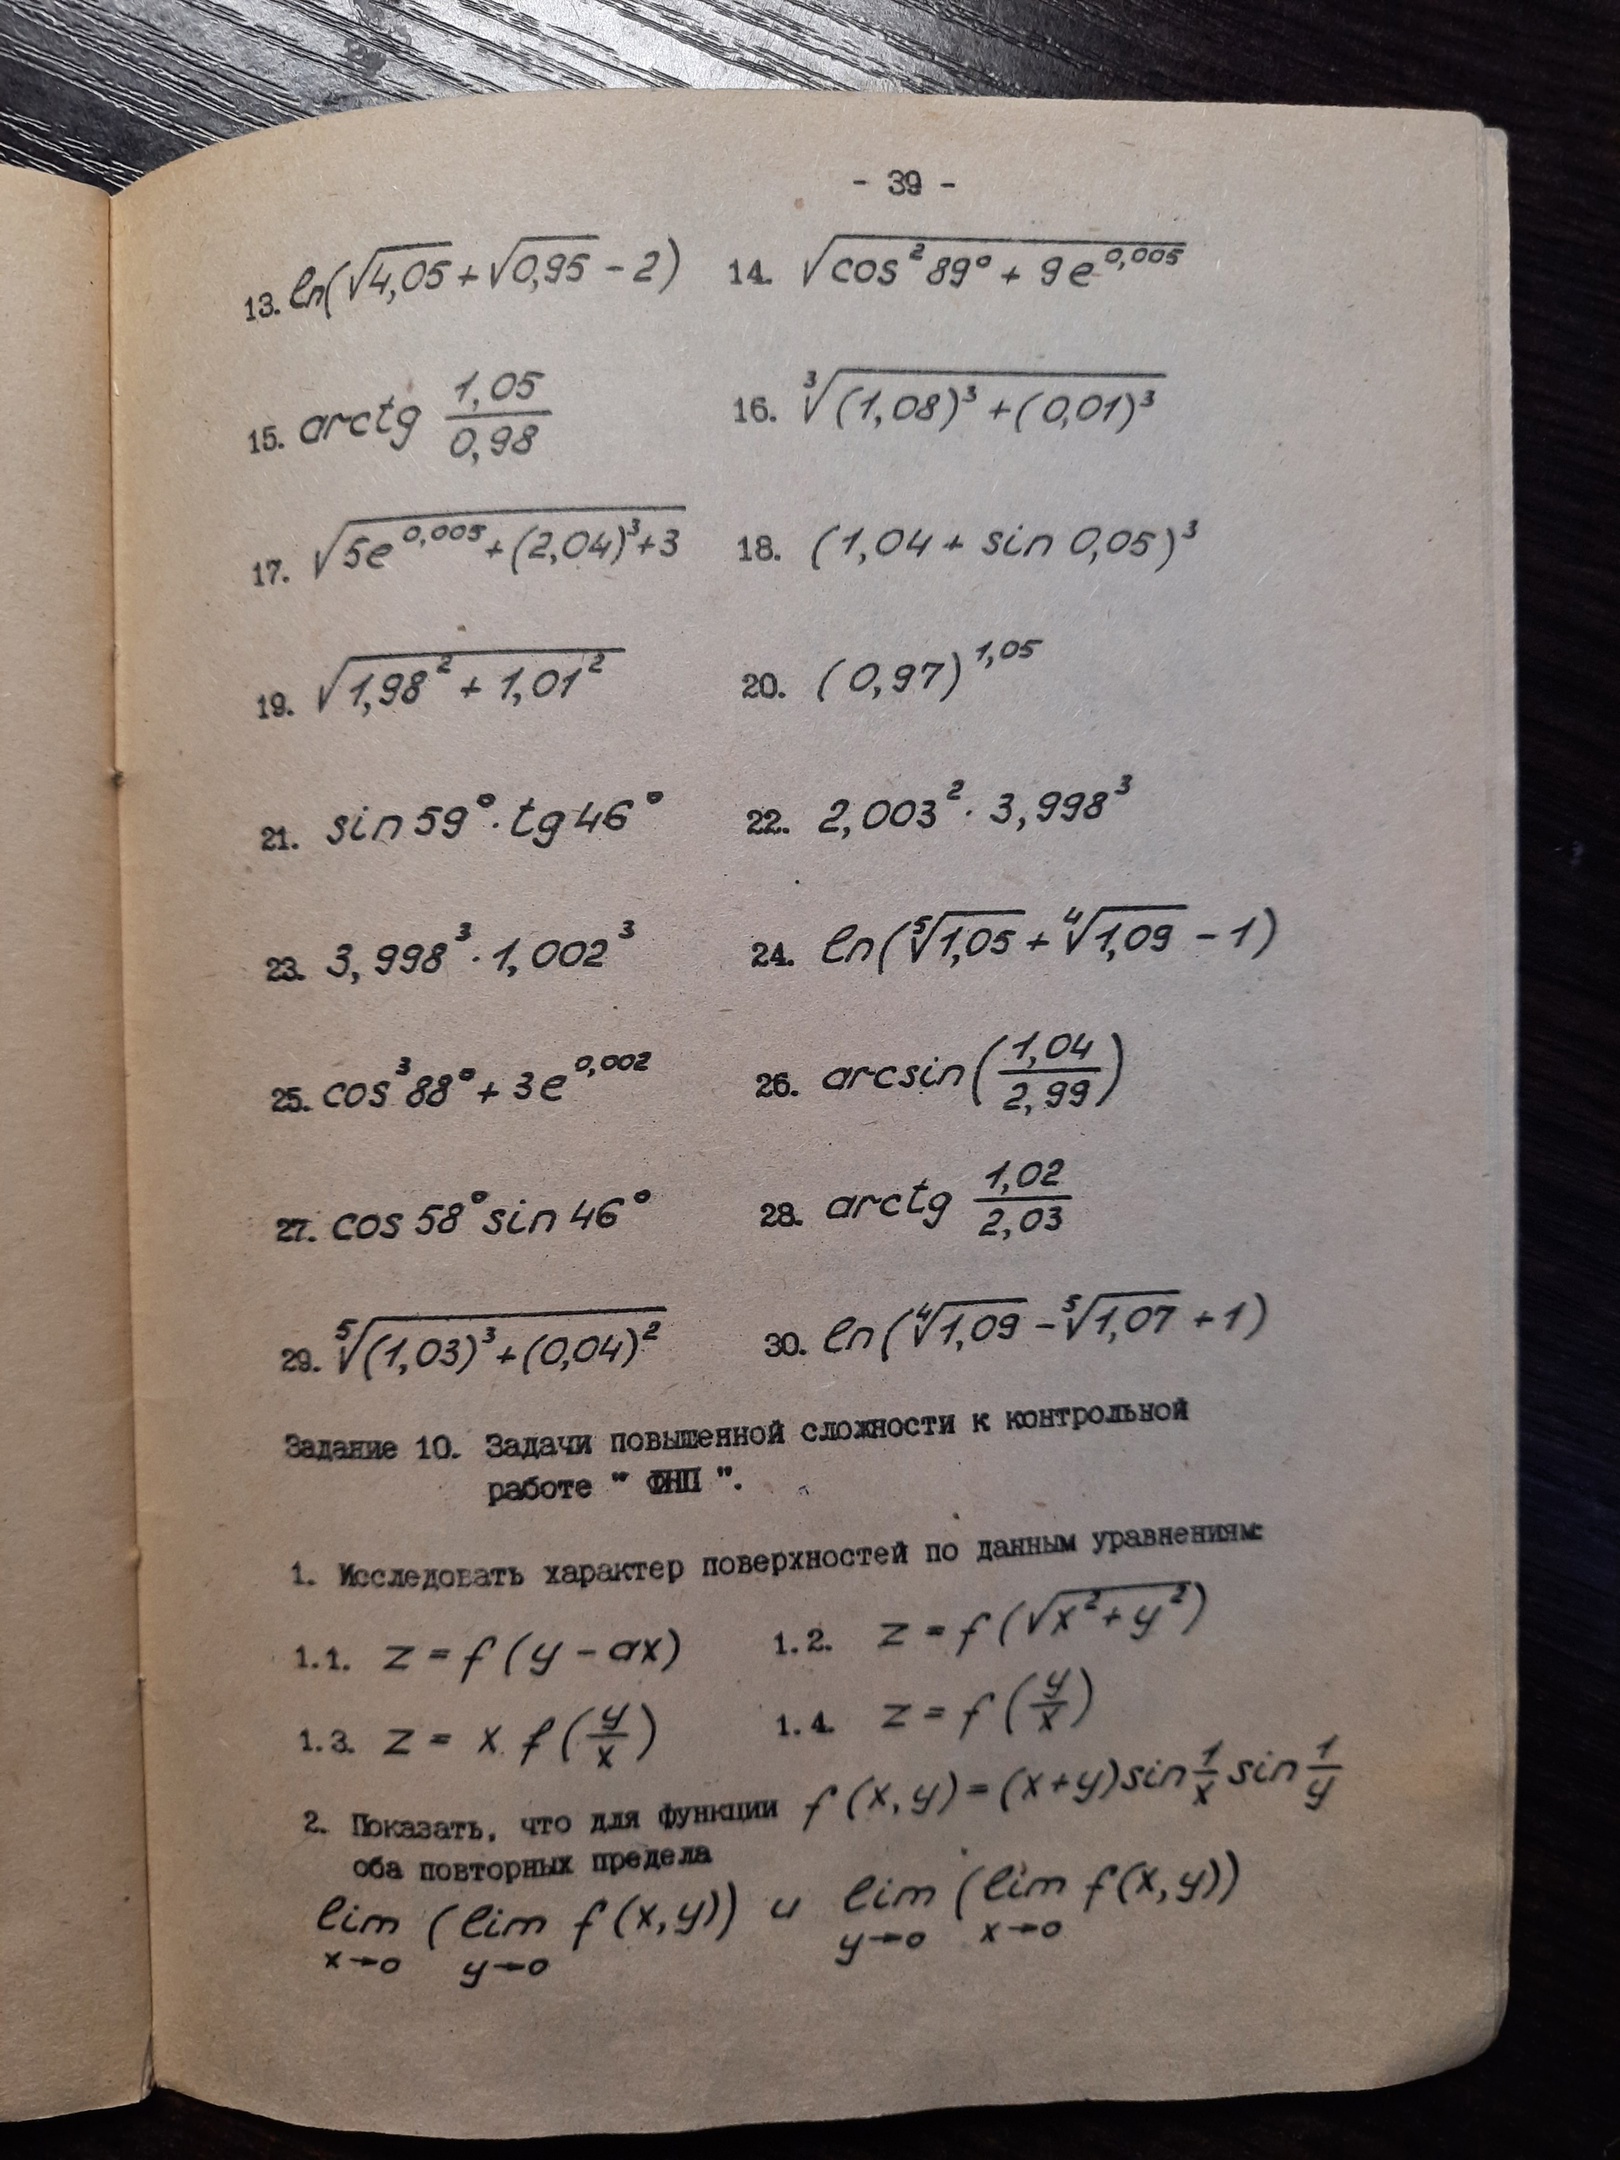 - 39 -
13. ln(√4,05 + √0,95 - 2) 14. √(cos²89° + 9e^0,005)
15. arctg 1,05/0,98 16. ∛((1,08)³ + (0,01)³)
17. √(5e^0,005 + (2,04)³ + 3) 18. (1,04 + sin 0,05)³
19. √(1,98² + 1,01²) 20. (0,97)^1,05
21. sin 59° · tg 46° 22. 2,003² · 3,998³
23. 3,998³ · 1,002³ 24. ln(⁵√1,05 + ⁴√1,09 - 1)
25. cos³88° + 3e^0,002 26. arcsin(1,04/2,99)
27. cos 58° sin 46° 28. arctg 1,02/2,03
29. ⁵√((1,03)³ + (0,04)²) 30. ln(⁴√1,09 - ⁵√1,07 + 1)
Задание 10. Задачи повышенной сложности к контрольной
работе " ФНП ".
1. Исследовать характер поверхностей по данным уравнениям:
1.1. z = f(y - ax) 1.2. z = f(√(x² + y²))
1.3. z = x f(y/x) 1.4. z = f(y/x)
2. Показать, что для функции f(x,y) = (x+y) sin 1/x sin 1/y
оба повторных предела
lim (lim f(x,y)) и lim (lim f(x,y))
x→0 y→0 y→0 x→0